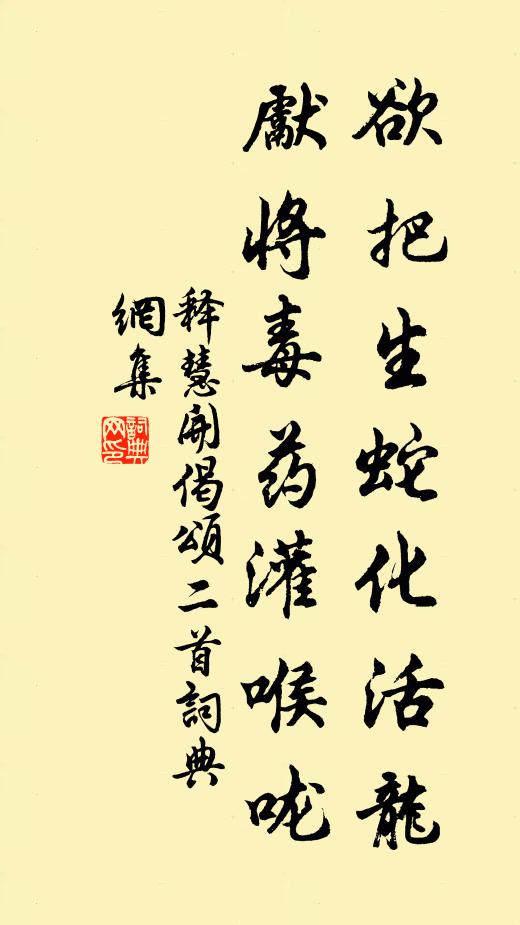 欲把生蛇化活龍
献將毒药灌喉咙
释慧開偈頌二首詞典
網集
詞典
网印